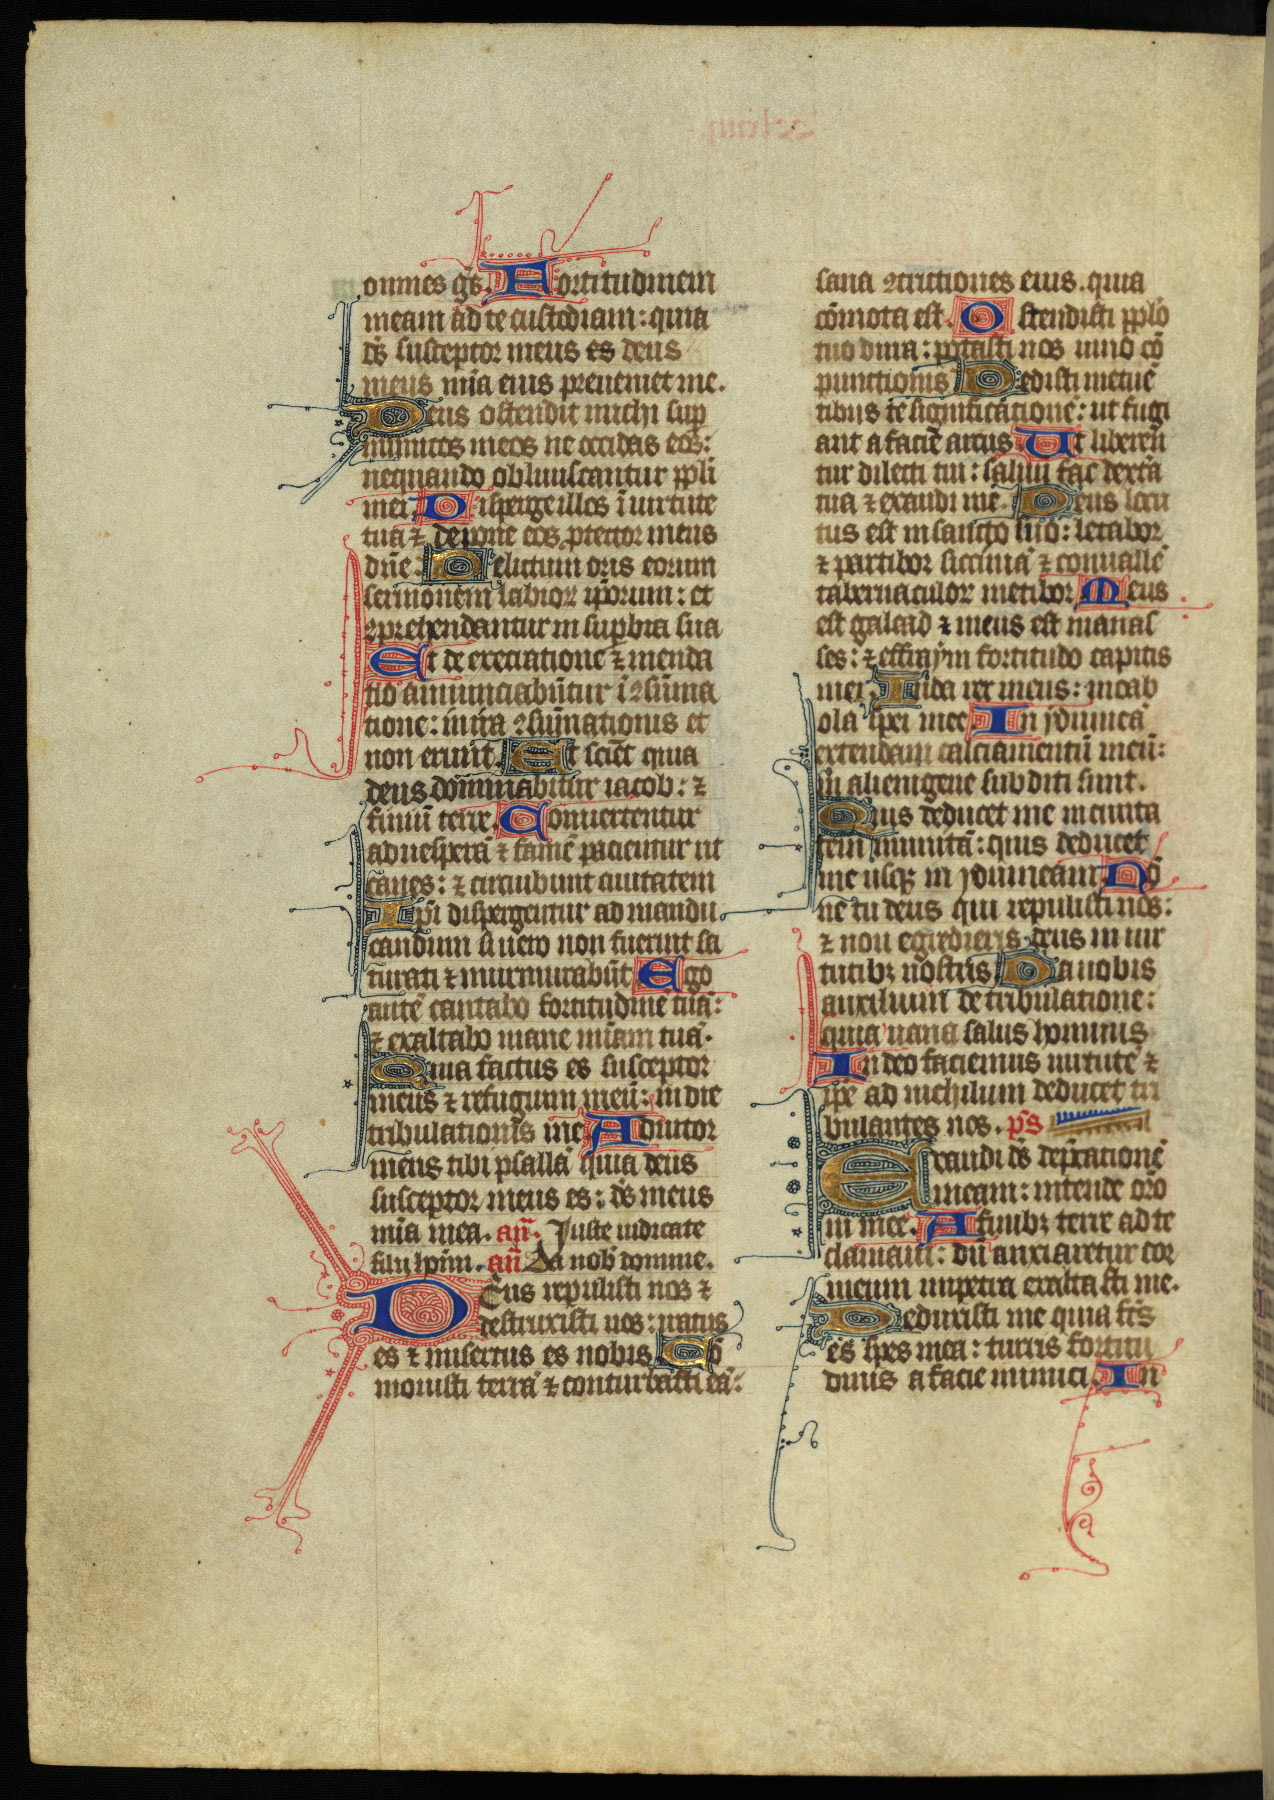 omnes gẽs. Fortitudinem
meam ad te custodiam: quia
ds̃ susceptor meus es deus
meus mĩa eius preueniet me.
Deus ostendit michi sup
inimicos meos ne occidas eos:
nequando obliuiscantur pp̃li
mei. Disperge illos ĩ uirtute
tua ⁊ depone eos ptector meus
dñe. Delictum oris eorum
sermonem labioꝝ ip̃orum: et
ꝯprehendantur in supbia sua
Et de execratione ⁊ menda
tio annunciabũtur ĩ ꝯsũma
tione: in ira ꝯsũmationis et
non erunt. Et sciẽt quia
deus dominabitur iacob: ⁊
finiũ terre. Conuertentur
ad uesperã ⁊ famẽ pacientur ut
canes: ⁊ circuibunt ciuitatem
Ip̃i dispergentur ad mandu
candum si uero non fuerint sa
turati ⁊ murmurabũt Ego
autẽ cantabo fortitudinẽ tuã:
⁊ exaltabo mane mĩam tuã.
Quia factus es susceptor
meus ⁊ refugium meũ: in die
tribulationis mee Adiutor
meus tibi psallã quia deus
susceptor meus es: ds̃ meus
mĩa mea. añ. Juste iudicate
filij hoĩm. añ Da nob̃ domine.
Deus repulisti nos ⁊
destruxisti nos: iratus
es ⁊ misertus es nobis Cõ
mouisti terrã ⁊ conturbasti eã:
sana ꝯtritiones eius. quia
cõmota est. Ostendisti pp̃lo
tuo dura: potasti nos uino cõ
punctionis Dedisti metuẽ
tibus te significationẽ: ut fugi
ant a faciẽ arcus Ut liberen
tur dilecti tui: saluũ fac dextã
tua ⁊ exaudi me. Deus locu
tus est in sancto suo: letabor
⁊ partibor siccimã ⁊ conuallẽ
tabernaculoꝝ metibor Meus
est galaad ⁊ meus est manas
ses: ⁊ effraym fortitudo capitis
mei. Iuda rex meus: moab
olã spei mee. In ydumeã
extendam calciamentũ meũ:
m̃ alienigene subditi sunt.
Quis deducet me in ciuita
tem munitã: quis deducet
me usqꝫ in ydumeam Nõ
ne tu deus qui repulisti nos:
⁊ non egredieris deus in uir
tutibꝫ nostris Da nobis
auxilium de tribulatione:
quia uana salus hominis
In deo faciemus uirtutẽ ⁊
ip̃e ad nichilum deducet tri
bulantes nos. p̃s
Exaudi ds̃ dep̃cationẽ
meam: intende orõ
ni mee. A finibꝫ terre ad te
clamaui: dũ anxiaretur cor
meum in petra exaltasti me.
Deduxisti me quia fc̃s
es spes mea: turris fortitu
dinis a facie inimici. In